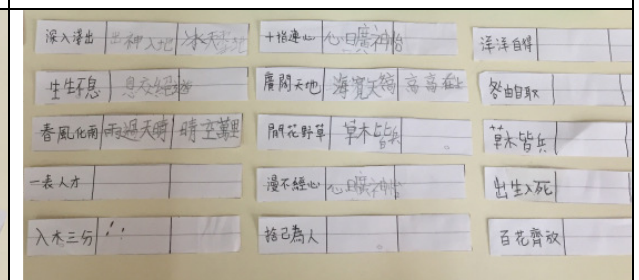 深入淺出 出神入地 冰天雪地
生生不息 息交絕遊
春風化雨 雨過天晴 晴空萬里
一表人才
入木三分
十指連心 心曠神怡
廣闊天地 海寬天 高高在上
閒花野草 草木皆兵
漫不經心 心曠神怡
捨己為人
洋洋自得
咎由自取
草木皆兵
出生入死
百花齊放